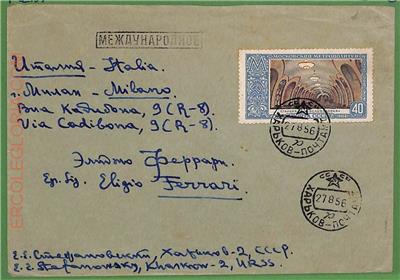 МЕЖДУНАРОДНОЕ
МОСКОВСКИЙ МЕТРОПОЛИТЕН
40
Италия - Italia.
г. Милан - Milano.
Виа Кадибона, 9 (R-8).
Via Cadibona, 9 (R-8).
СССР
27 8 56
ХАРЬКОВ-ПОЧТАМТ
Элиджо Феррари.
Eligio Ferrari.
СССР
27 8 56
ХАРЬКОВ-ПОЧТАМТ
Е.Е. Стефановский, Харьков-2, СССР.
E.E. Stefanowsky, Kharkow-2, URSS.
ERCOLEGLORIA